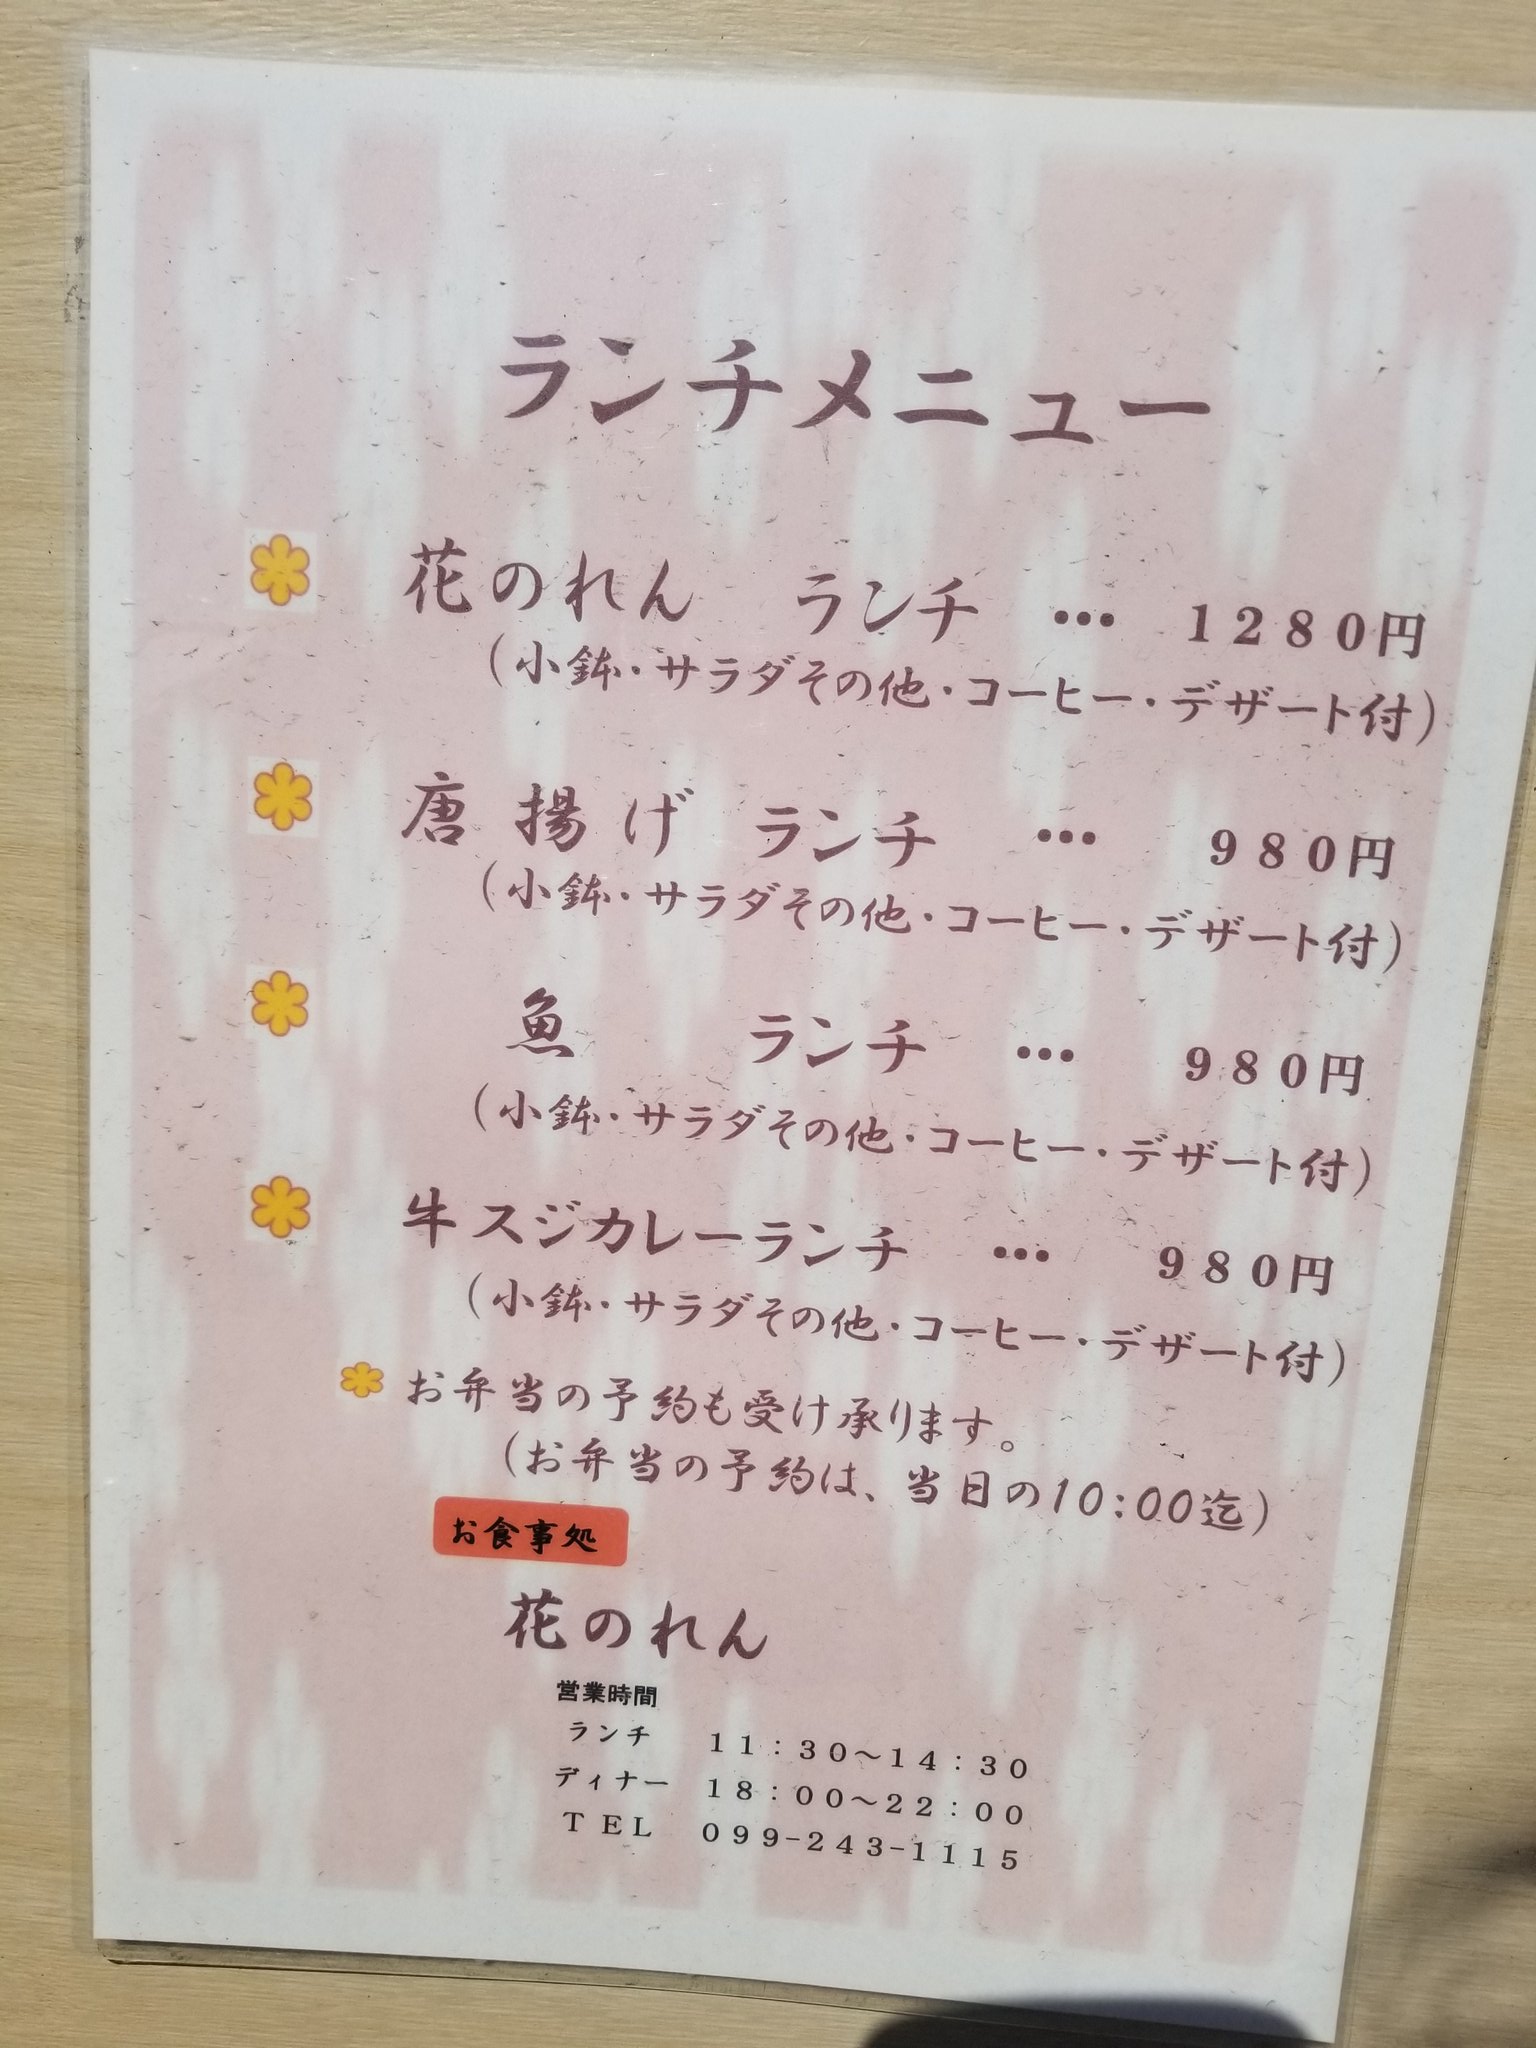 ランチメニュー
花のれん ランチ ・・・ 1280円
(小鉢・サラダその他・コーヒー・デザート付)
唐揚げ ランチ ・・・ 980円
(小鉢・サラダその他・コーヒー・デザート付)
魚 ランチ ・・・ 980円
(小鉢・サラダその他・コーヒー・デザート付)
牛スジカレーランチ ・・・ 980円
(小鉢・サラダその他・コーヒー・デザート付)
お弁当の予約も受け承ります。
(お弁当の予約は、当日の10:00迄)
お食事処
花のれん
営業時間
ランチ 11:30～14:30
ディナー 18:00～22:00
TEL 099-243-1115